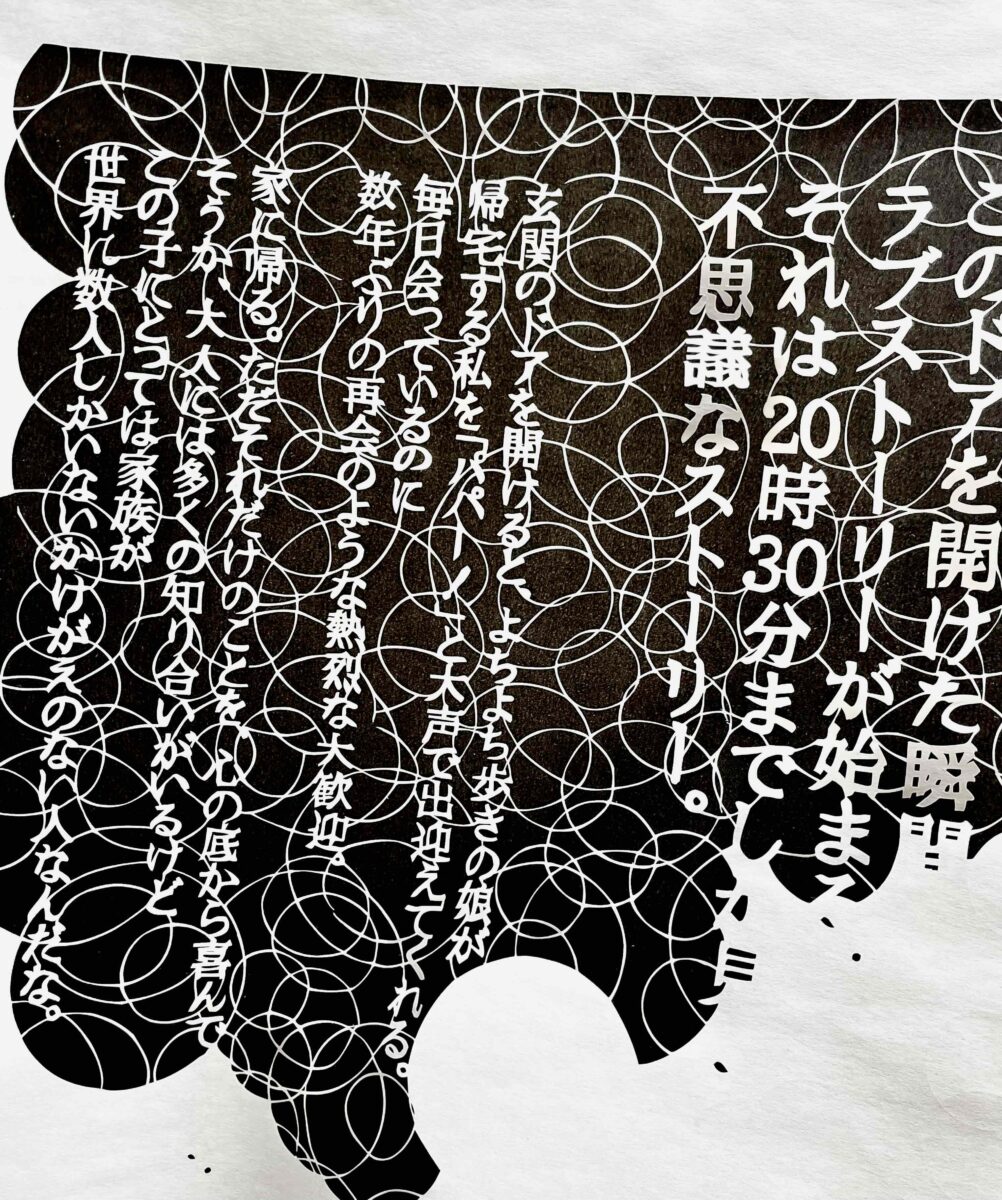 このドアを開けた瞬間
ラブストーリーが始ま
それは20時30分までし
不思議なストーリー。
玄関のドアを開けると、よちよち歩きの娘が
帰宅する私を「パパー！」と大声で出迎えてくれる。
毎日会っているのに
数年ぶりの再会のような熱烈な大歓迎。
家に帰る。ただそれだけのことを、心の底から喜んで
そうか、大人には多くの知り合いがいるけど
この子にとっては家族が
世界に数人しかいないかけがえのない人なんだな。